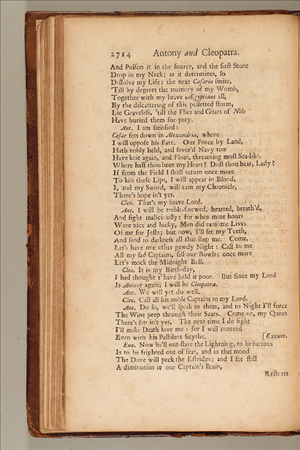 2714 Antony and Cleopatra.
And Poison it in the source, and the first Stone
Drop in my Neck; as it determines, so
Dissolve my Life; the next Cæsario smite,
'Till by degrees the memory of my Womb,
Together with my brave Ægyptians all,
By the discattering of this pelleted storm,
Lie Graveless, 'till the Flies and Gnats of Nile
Have buried them for prey.
Ant. I am satisfied:
Cæsar sets down in Alexandria, where
I will oppose his Fate. Our Force by Land,
Hath nobly held, and sever'd Navy too
Have knit again, and Float, threatning most Sea-like.
Where hast thou been my Heart? Dost thou hear, Lady?
If from the Field I shall return once more
To kiss these Lips, I will appear in Blood,
I, and my Sword, will earn my Chronicle,
There's hope in't yet.
Cleo. That's my brave Lord.
Ant. I will be treble-sinewed, hearted, breath'd,
And fight maliciously: for when mine hours
Were nice and lucky, Men did ransome Lives
Of me for Jests; but now, I'll set my Teeth,
And send to darkness all that stop me. Come,
Let's have one other gawdy Night: Call to me
All my sad Captains, fill our Bowls; once more
Let's mock the Midnight Bell.
Cleo. It is my Birth-day,
I had thought t'have held it poor. But since my Lord
Is Antony again, I will be Cleopatra.
Ant. We will yet do well.
Cleo. Call all his noble Captains to my Lord.
Ant. Do so, we'll speak to them, and to Night I'll force
The Wine peep through their Scars. Come on, my Queen
There's sap in't yet. The next time I do fight
I'll make Death love me: for I will contend
Even with his Pestilent Scythe. [Exeunt.
Eno. Now he'll out-stare the Lightning, to be furious
Is to be frighted out of fear, and in that mood
The Dove will peck the Estridge; and I see still
A diminution in our Captain's Brain,
Restores